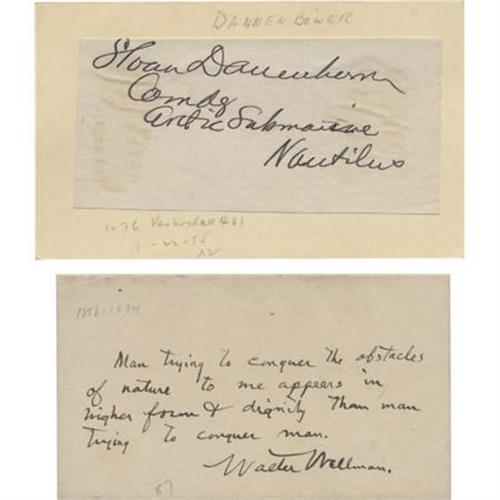 DANNENBOWER
Sloan Danenhower
Comdg
Arctic Submarine
Nautilus
1276
1-22-55
1858-1934
Man trying to conquer the obstacles
of nature to me appears in
higher form & dignity than man
trying to conquer man.
Walter Wellman.